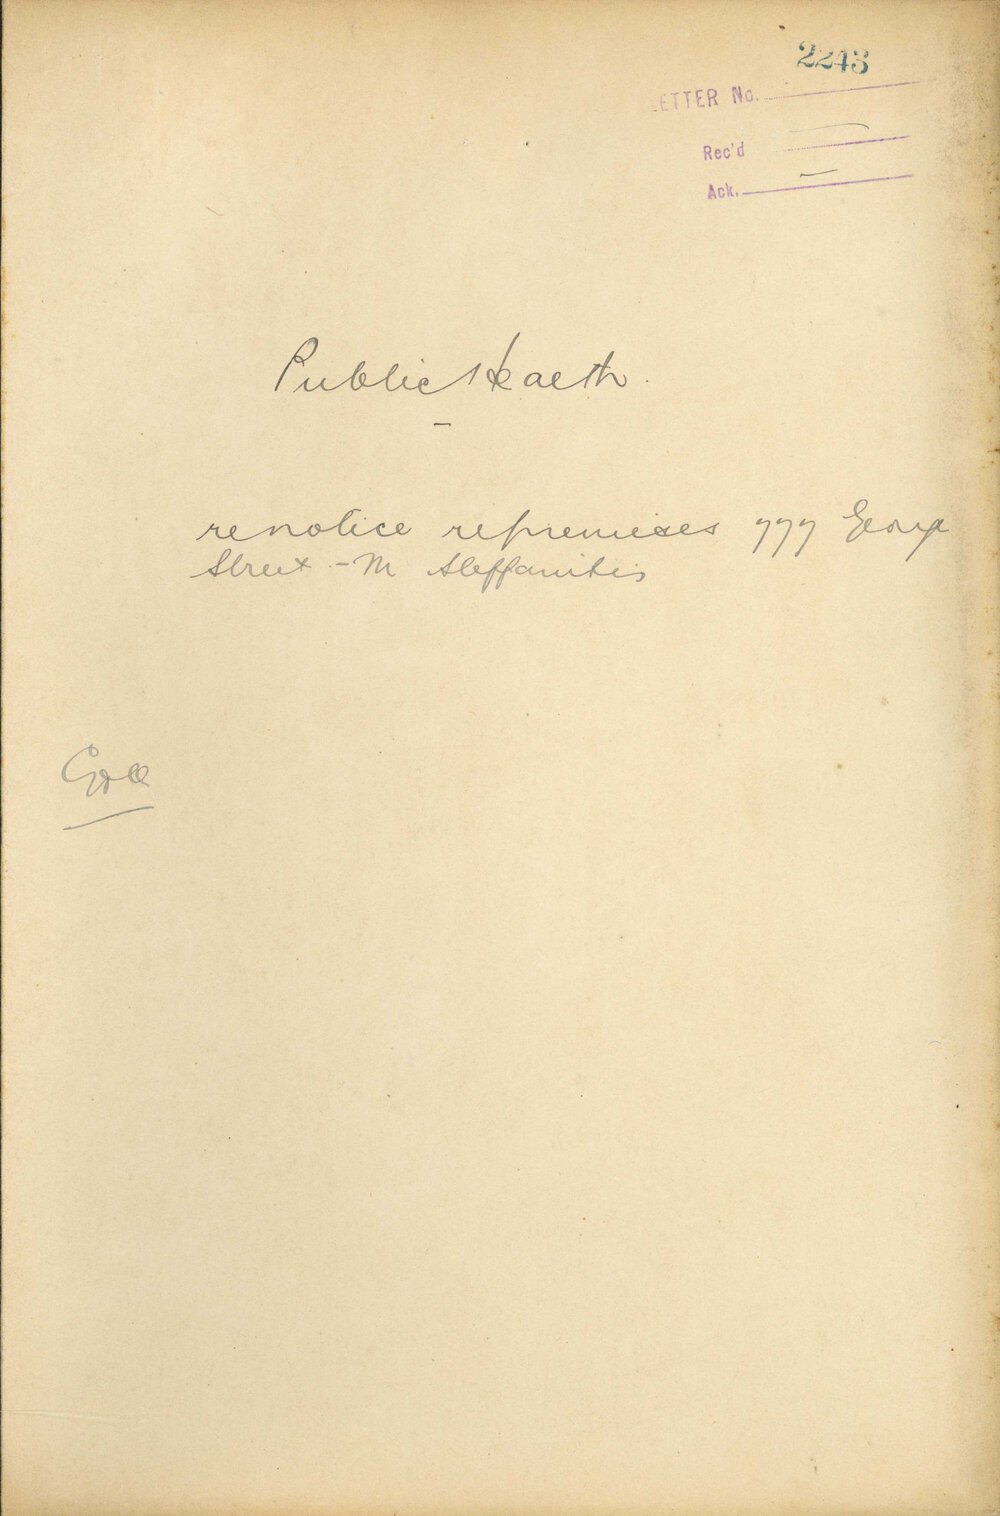 2243
LETTER No.
Rec'd
Ack.
Public Health.
re notice re premises 777 George
Street - M Steffanitis